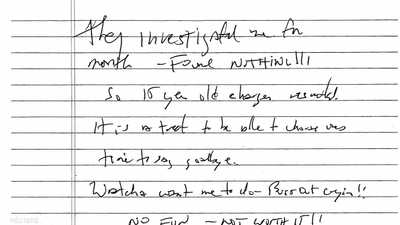 They investigated me for
month – FOUND NOTHING!!!
So 15 year old charges resulted.
It is a treat to be able to choose one's
time to say goodbye.
Watcha want me to do – Burst out crying!!
NO FUN – NOT WORTH IT!!